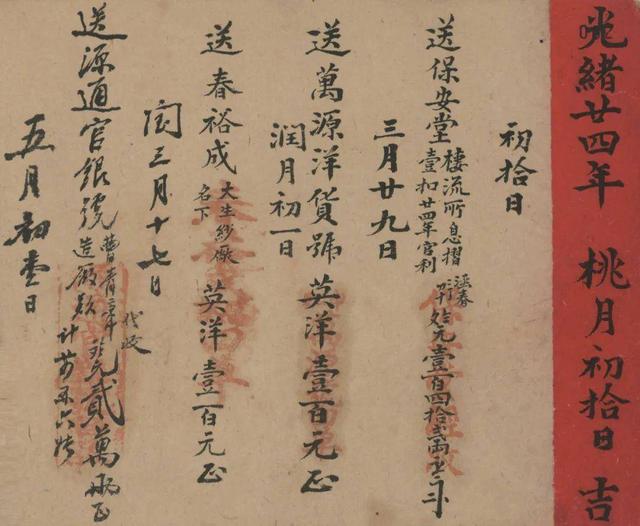 光緒廿四年 桃月初拾日 吉
初拾日
送保安堂 棲流所息摺
壹扣廿四年官利
元壹百四拾
三月廿九日
送萬源洋貨號 英洋壹百元正
潤月初一日
送春裕成 大生紗廠
名下 英洋壹百元正
閏三月十七日
送源通官銀號 造廠款 代收
貳萬 正
五月初壹日